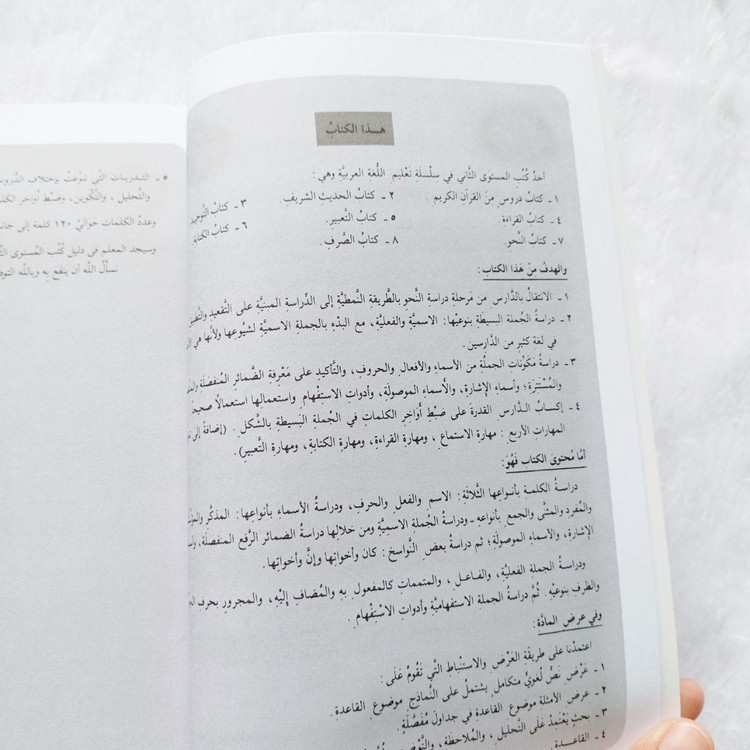 هـذا الكتابُ
أحدُ كُتُبِ المستوى الثَّاني في سِلْسلَةِ تَعْليمِ اللُّغَة العربيَّةِ وهي :
١ - كتابُ دروس مِنَ القرآنِ الكريم . ٢ - كتابُ الحديث الشريف. ٣ - كتابُ
٤ - كتابُ القراءةِ. ٥ - كتابُ التَّعبيرِ. ٦ - كتابُ
٧ - كتابُ النَّحو. ٨ - كتابُ الصَّرفِ.
والهدفُ مِنْ هَذا الكتابِ :
١ - الانتقالُ بالدَّارسِ من مَرحلةِ دراسةِ النَّحو بالطَّريقةِ النَّمطيَّةِ إلى الدِّراسةِ المبنيَّةِ على التَّقعيدِ
٢ - دراسةُ الجُملة البسيطَة بنوعيْها: الاسميَّةِ والفعليَّةِ، مع البدْءِ بالجملةِ الاسميَّةِ لشيُوعها ولأنها هي
في لغة كثيرٍ من الدَّارسين.
٣ - دراسةُ مكوِّنات الجملَّة من الأسماءِ والأفعالِ والحروف، والتَّأكيدِ على مَعْرفة الضَّمائر المُنفَصلَة
والمُسْتترَة؛ وأسماءِ الإشارة، والأسماءِ الموصولَةِ، وأدوات الاستِفْهام واستعمالها استعمالًا صحيحًا
٤ - إكسابُ الـدَّارس القدرةَ على ضبْطِ أوَاخِر الكلمات في الجُملة البَسيطَة بالشَّكْل . (إضافةً إلى
المهارات الأربع : مهارة الاستماع ، ومهارة القراءة، ومهارة الكتابة، ومهارة التَّعبير).
أمَّا مُحتوىَ الكتاب فَهُوَ:
دراسـةُ الكلمـة بأنـواعها الثَّلاثَةِ: الاسمِ والفعلِ والحرفِ، ودراسةُ الأسماء بأنواعِها: المذكَّر
والمُفردِ والمثنَّى والجمع بأنواعه - ودراسةُ الجُملة الاسميَّةِ ومن خلالِها دراسةُ الضمائر الرَّفع المنفصلَة،
الإشارة، والأسماء الموصولَةِ؛ ثم دراسةُ بعض النَّواسخ: كان وأخواتها وإنَّ وأخواتِها.
ودراسـةُ الجملة الفعليَّة، والفـاعـل ، والمتممات كـالمفعولِ به والمُضاف إِلَيْهِ، والمجرور بحرف
والظرف بنوعيْه. ثُمَّ دراسةُ الجملة الاستفهاميَّةِ وأدوات الاسْتِفْهام .
وفي عرض المادَّة:
اعتمدْنا على طريقَةِ العَرْض والاستنْباط التَّي تَقُومُ عَلَى :
١ - عَرْض نَصٍّ لُغويٍّ متكامل يشتملُ على النَّماذج موضوع القاعدة.
٢ - عرض الأمثلة موضوع القاعدة في جداولَ مُفَصَّلَةٍ.
٣ - بحثٍ يَعْتمدُ علَى التَّحليل ، والمُلاحظَة،
٤ - القاعـدة.
٥ - التـدريبات التَّي تنوَّعتْ
والتَّحليل ، والتَّكوين، وضبْط أواخر
وعددُ الكلمات حواليْ ١٢٠ كلمة إلى
وسيجد المعلم في دليل كُتُب المُستوى
نسألُ اللَّه أن ينفع به وباللَّه